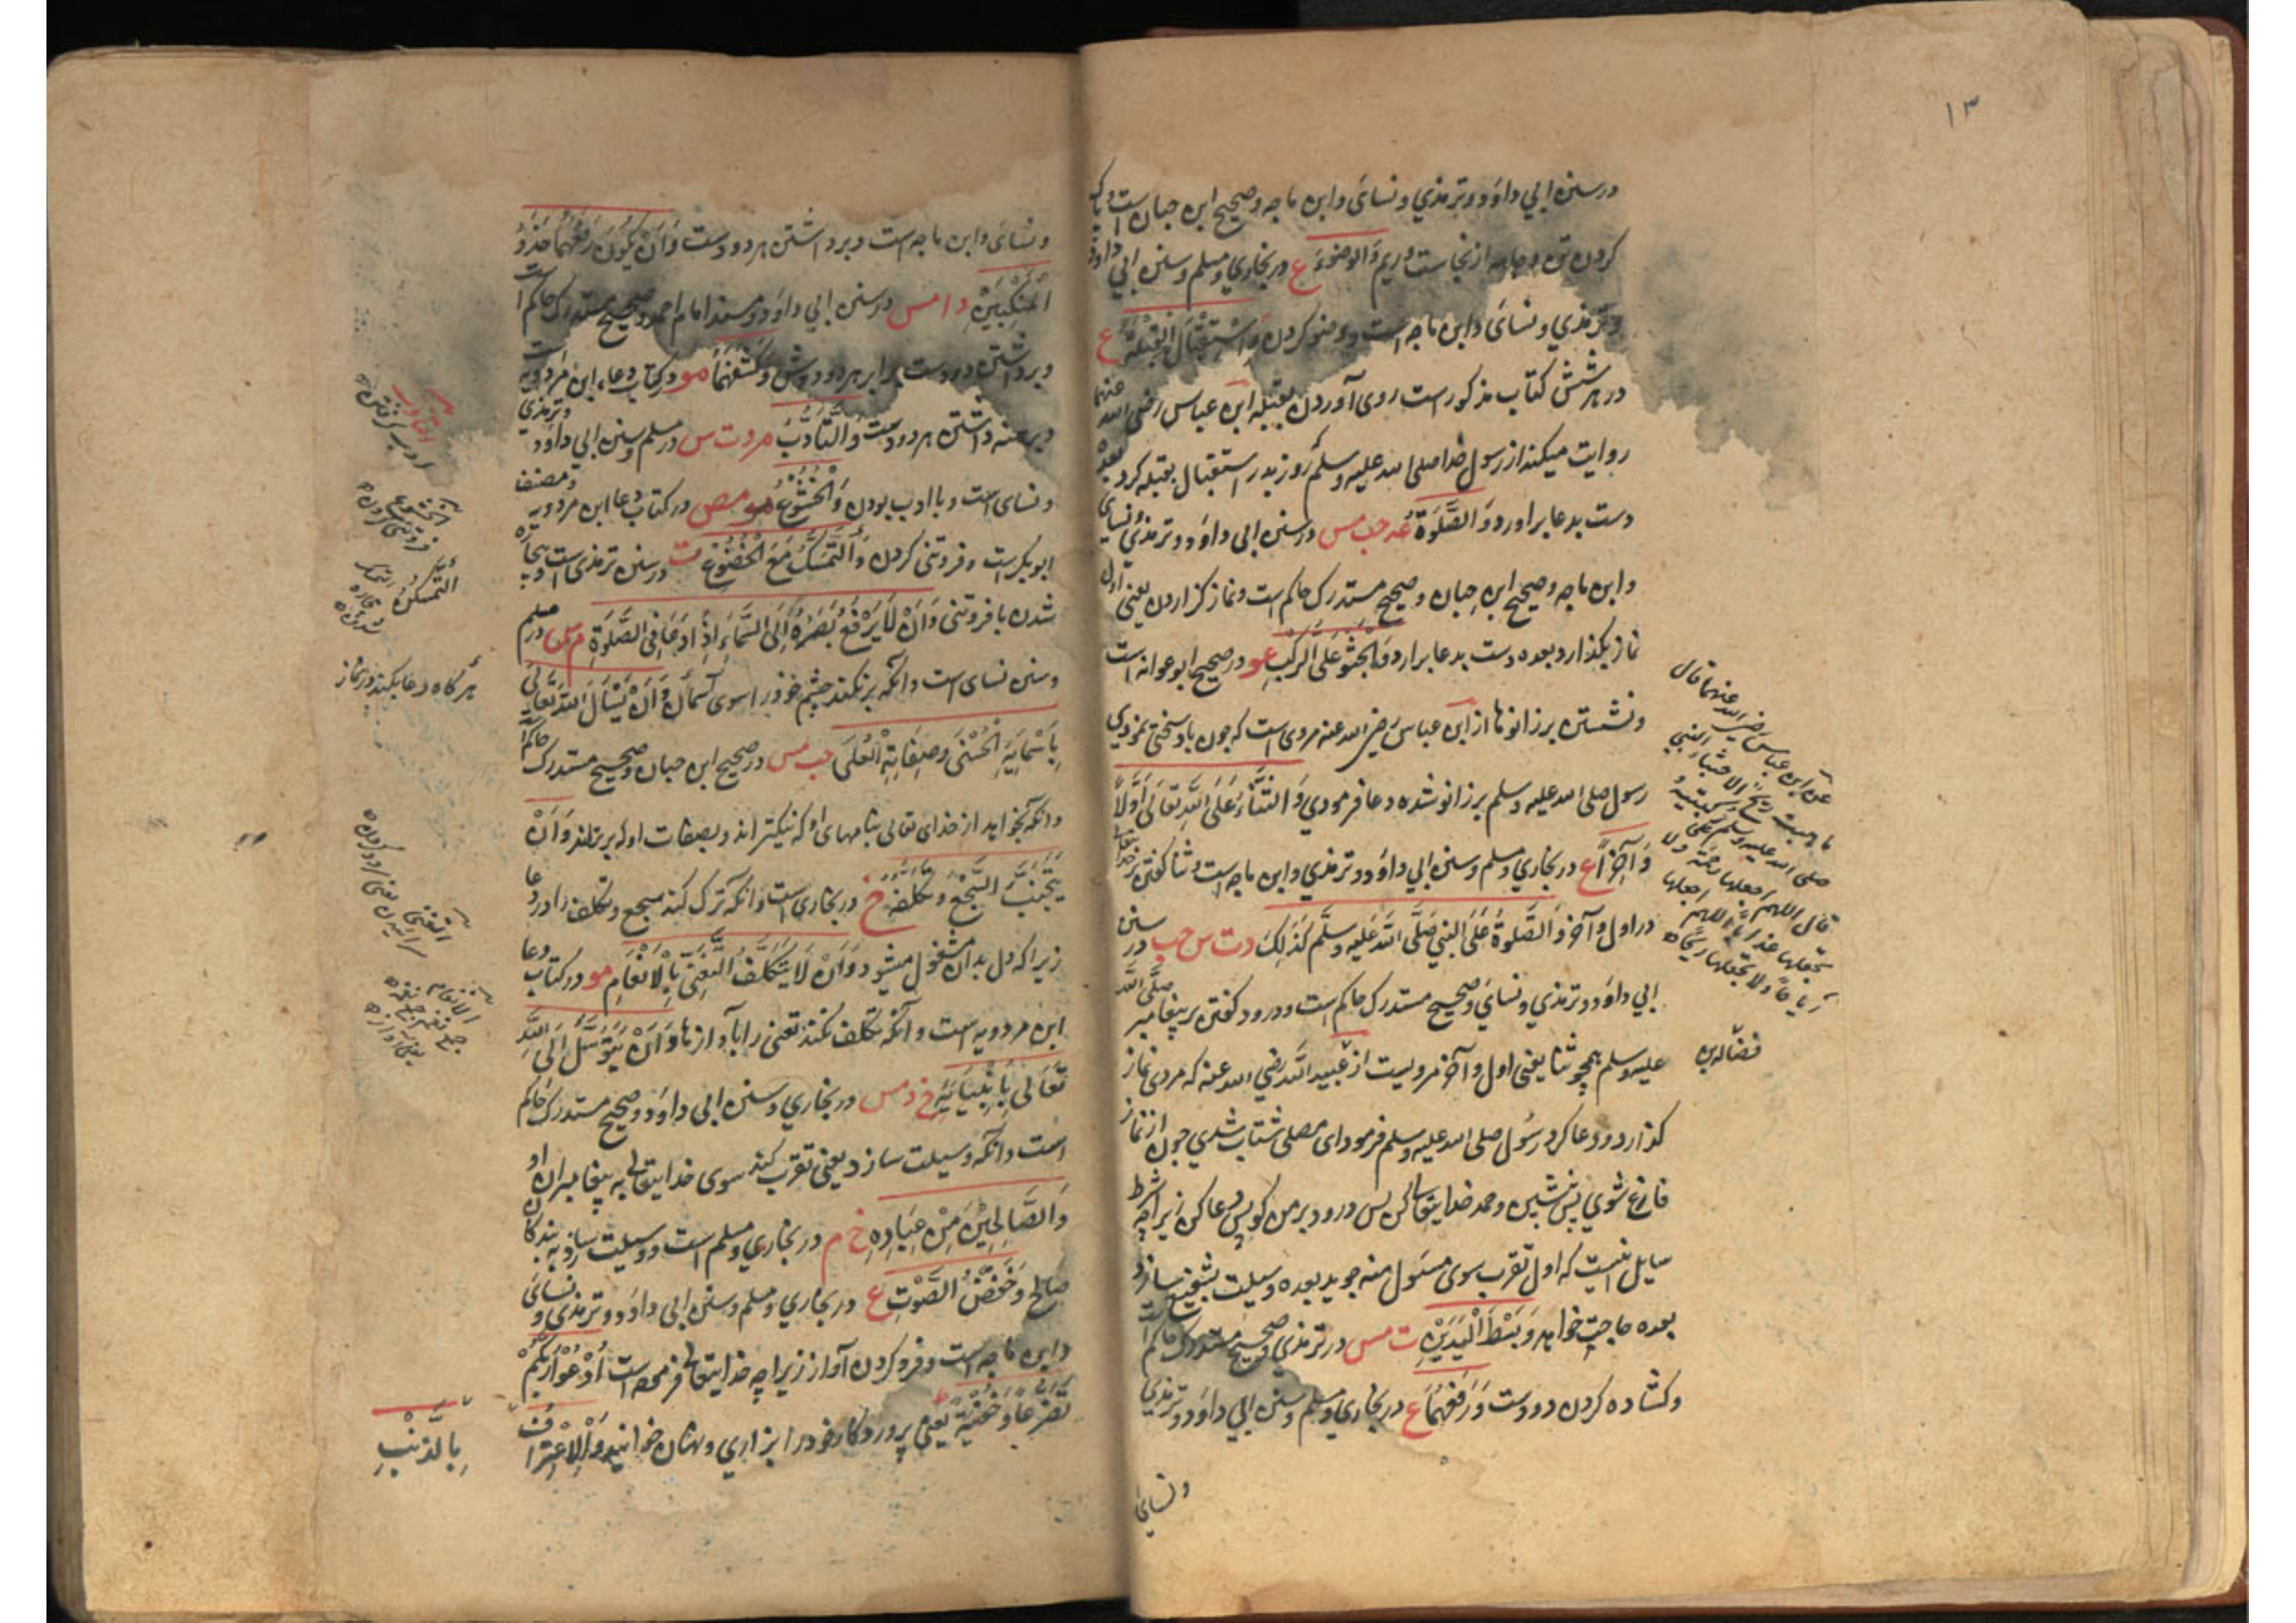 ١٣
در سنن ابي داؤد و ترمذي و نسائ و ابن ماجه و صحيح ابن حبان است و پاک
کردن تن و جامه از نجاست و ريم وَالوضوءَ ع در بخاري و مسلم و سنن ابي داود
و ترمذي و نسائ و ابن ماجه است و وضو کردن وَاسْتِقْبَالُ الْقِبْلَةِ ع
در هر شش کتاب مذکور است روی آوردن بقبله ابن عباس رضی الله عنهما
روايت ميکند از رسول خدا صلی الله عليه و سلم روز بدر استقبال بقبله کرد بعده
دست بدعا براورد وَالصَّلوٰةُ عه حب مس در سنن ابی داؤد و ترمذي و نسای
و ابن ماجه و صحيح ابن حبان و صحيح مستدرک حاکم است و نماز گزاردن يعنی اول
نماز بگذارد بعده دست بدعا برارد وَالْجُثُوُّ عَلَی الرُّکَبِ عو در صحيح ابو عوانه است
و نشستن بر زانوها از ابن عباس رضی الله عنه مروی است که چون باد سختی نمودي
رسول صلی الله عليه و سلم بر زانو شده دعا فرمودي وَالثَّنَاءُ عَلَی اللّٰهِ تَعَالٰی اَوَّلًا
وَ آخِرًا ع در بخاري و مسلم و سنن ابي داؤد و ترمذي و ابن ماجه است و ثنا گفتن بر خدايتعالی
در اول و آخر وَالصَّلوٰةُ عَلَی النبيِ صَلَّی اللّٰهُ عَلَيْهِ وَسَلَّم کَذٰلِکَ دت س حب در سنن
ابي داؤد و ترمذي و نسايَ و صحيح مستدرک حاکم است و درود گفتن بر پيغامبر صلَّی اللّٰه
عليه و سلم همچو ثنا يعنی اول و آخر مرويست از عبيد اللّٰه رضي الله عنه که مردی نماز
گذارد و دعا کرد رسُول صلی الله عليه و سلم فرمود ای مصلی شتاب شدي چون از نماز
فارغ شوي پس بنشين و حمد خدايتعالی کن پس درود بر من گو پس دعا کن زيراچه شرط
سايل انيست که اول تقرب سوی مسئول منه جويد بعده وسيلت بشفيع سازد
بعده حاجت خواهد وَ بَسْطُ الْيَدَيْنِ ت مس در ترمذي و صحيح مستدرک حاکم است
و کشاده کردن دو دست وَ رَفْعُهُمَا ع در بخاري و مسلم و سنن ابي داؤد و ترمذي
و نسائ
عن ابن عباس رضی الله عنهما قال
ما هبت ريح الا جثا النبي
صلی الله عليه و سلم علی رکبتيه و
قال اللهم اجعلها رحمة و لا
تجعلها عذابا اللهم اجعلها
رياحًا و لا تجعلها ريحًا
فضاله بن
و نسائ و ابن ماجه است و برداشتن هر دو دست وَاَنْ يَکُوْنَ رَفْعُهُمَا حَذْوَ
الْمَنْکِبَيْنِ د ا مس در سنن ابي داؤد و مسند امام احمد و صحيح مستدرک حاکم است
و برداشتن دو دست برابر هر دو دوش وَکَشْفُهُمَا مو در کتاب دعاء ابن مردويه است
و برهنه داشتن هر دو دست وَالتَّاَدُّبُ م د ت س در مسلم و سنن ابي داود و ترمذي
و نسای است و با ادب بودن وَالْخُشُوْعُ مو مص در کتاب دعا ابن مردويه و مصنف
ابوبکر است و فروتنی کردن وَالتَّمَسْکُنُ مَعَ الْخُضُوْعِ ت در سنن ترمذی است و بيچاره
شدن با فروتنی وَاَنْ لَا يَرْفَعَ بَصَرَهُ اِلَی السَّمَاءِ اِذَا دَعَا فِی الصَّلٰوةِ م س در مسلم
و سنن نسای است و انکه بر نکند چشم خود را سوی آسمان وَاَنْ يَسْاَلَ اللّٰهَ تَعَالٰی
بِاَسْمَائِهِ الْحُسْنٰی وَصِفَاتِهِ الْعُلٰی حب مس در صحيح ابن حبان و صحيح مستدرک حاکم
و انکه بخواهد از خدای تعالی بنامهای او که نيکتر اند و بصفات او که برتراند وَاَنْ
يَتَجَنَّبَ السَّجْعَ وَتَکَلُّفَهُ خ در بخاری است و انکه ترک کند سجع و تکلف را در دعا
زيراکه دل بدان مشغول ميشود وَاَنْ لَا يَتَکَلَّفَ التَّغَنِّی بِالْاَنْغَامِ مو در کتاب دعا
ابن مردويه است و آنکه تکلف نکند تغنی را بآوازها وَاَنْ يَتَوَسَّلَ اِلَی اللّٰهِ
تَعَالٰی بِاَنْبِيَائِهِ خ ر مس در بخاري و سنن ابی داؤد و صحيح مستدرک حاکم
است و انکه وسيلت سازد يعنی تقرب کند سوی خدايتعالی به پيغامبران او
وَالصَّالِحِيْنَ مِنْ عِبَادِهِ خ م در بخاري و مسلم است و وسيلت سازد به بندکان
صالح وَخَفْضُ الصَّوْتِ ع در بخاري و مسلم و سنن ابی داؤد و ترمذی و نسائ
و ابن ماجه است و فرو کردن آواز زيراچه خدايتعالی فرموده است اُدْعُوْا رَبَّکُمْ
تَضَرُّعًا وَخُفْيَةً يعنی پروردگار خود را بزاري و پنهان خوانيد وَالْاِعْتِرَافُ
بِالذَّنْبِ
ادب گرفتن
الخشوع
فروتنی کردن
التمسکن
بيچاره
شدن
هر گاه دعا بکند در نماز
التغنی
سرائيدن يعنی سرود کردن
الانغام
جمع نغم جمع نغمه
يعنی آواز